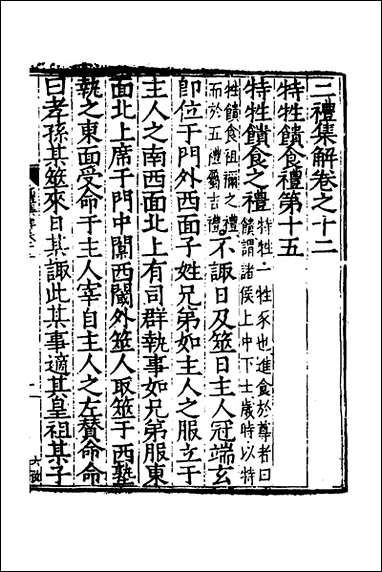 二禮集解卷之十二
特牲饋食禮第十五
特牲饋食之禮特牲一牲豕也進食於尊者曰饋謂諸侯上中下士歲時以特
牲饋食祖禰之禮而於五禮屬吉禮不諏日及筮日主人冠端玄
即位于門外西面子姓兄弟如主人之服立于
主人之南西面北上有司群執事如兄弟服東
面北上席于門中闑西閾外筮人取筮于西塾
執之東面受命于主人宰自主人之左贊命命
曰孝孫某筮來日某諏此某事適其皇祖某子